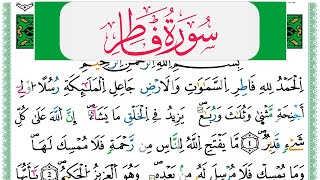 سُورَةُ فَاطِرٍ
بِسْمِ اللّٰهِ الرَّحْمٰنِ الرَّحِيْمِ
اَلْحَمْدُ لِلّٰهِ فَاطِرِ السَّمٰوٰتِ وَالْاَرْضِ جَاعِلِ الْمَلٰٓئِكَةِ رُسُلًا اُولِيْٓ
اَجْنِحَةٍ مَّثْنٰى وَثُلٰثَ وَرُبٰعَ ؕ يَزِيْدُ فِي الْخَلْقِ مَا يَشَآءُ ؕ اِنَّ اللّٰهَ عَلٰى كُلِّ
شَيْءٍ قَدِيْرٌ ۝١ مَا يَفْتَحِ اللّٰهُ لِلنَّاسِ مِنْ رَّحْمَةٍ فَلَا مُمْسِكَ لَهَا ۚ
وَمَا يُمْسِكْ فَلَا مُرْسِلَ لَهٗ مِنْۢ بَعْدِهٖ ؕ وَهُوَ الْعَزِيْزُ الْحَكِيْمُ ۝٢ يٰٓاَيُّهَا